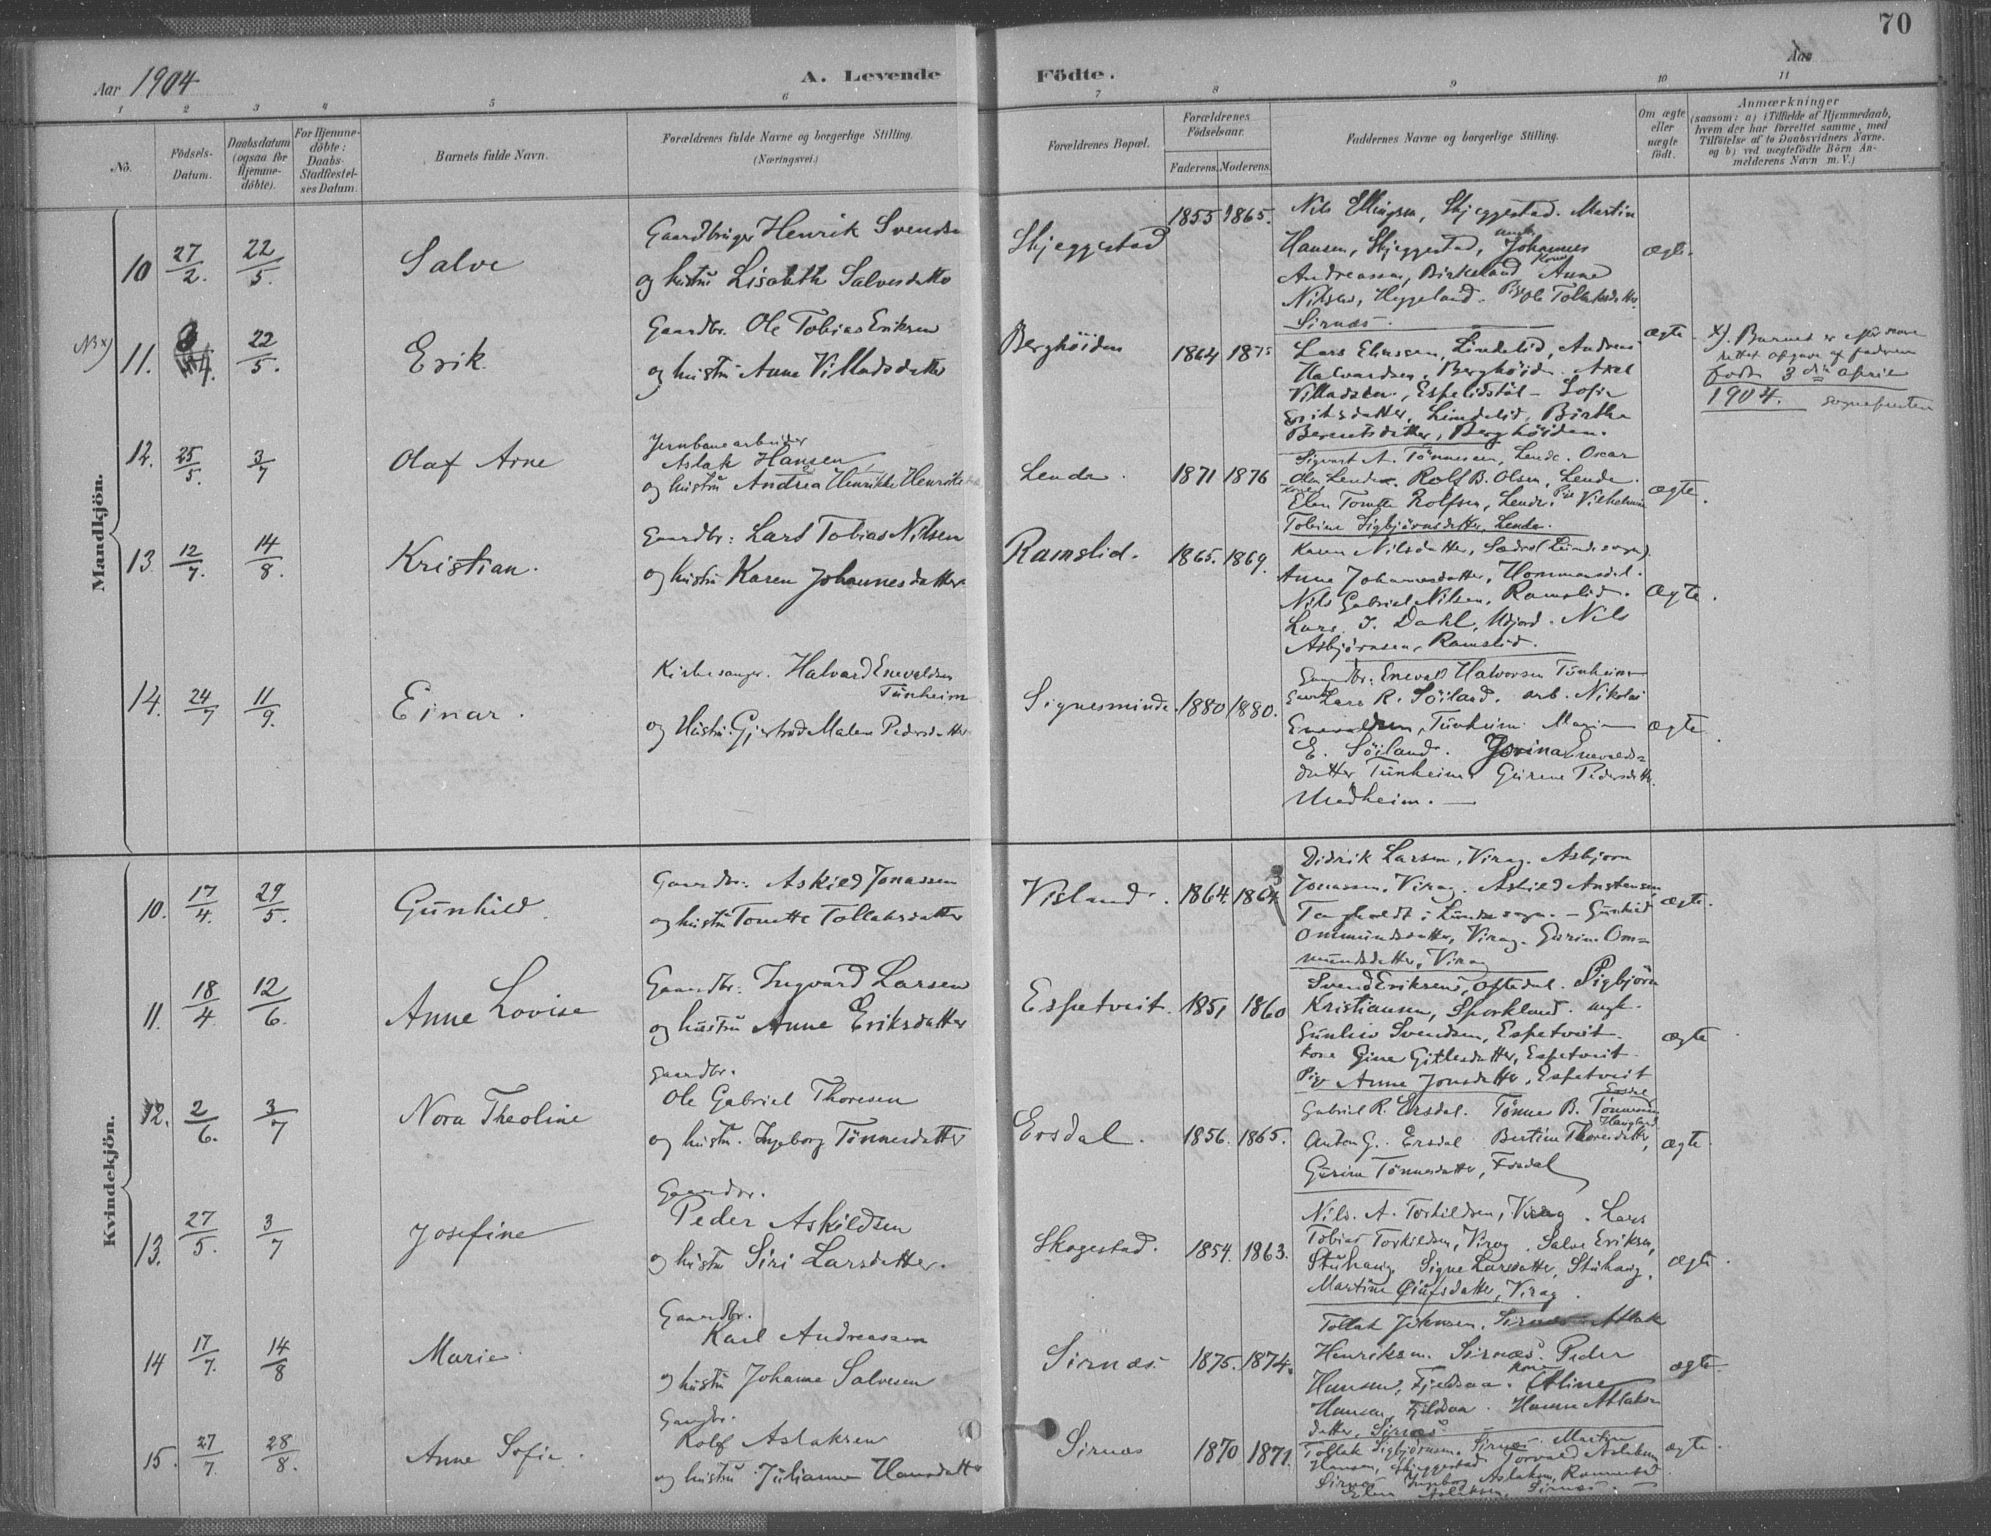 70
Aar 1904
A. Levende
Födte.
Aar
1 2 3 4 5 6 7 8 9 10 11
No.
Födsels-Datum.
Daabsdatum (ogsaa for Hjemme-döbte).
For Hjemme-döbte: Daabs-Stadfæstel-ses Datum.
Barnets fulde Navn.
Forældrenes fulde Navne og borgerlige Stilling.
(Næringsvei.)
Forældrenes Bopæl.
Forældrenes Födselsaar.
Faderens. Moderens.
Faddernes Navne og borgerlige Stilling.
Om ægte eller uægte födt.
Anmærkninger
(saasom: a) i Tilfælde af Hjemmedaab, hvem der har forrettet samme, med Tilföielse af to Daabsvidners Navne. og b) ved uægtefödte Börn An-melderens Navn m. V.)
Mandkjön.
10 27/2. 22/5. Salve
Gaardbruger Henrik Svendsen
og hustru Lisabeth Salvesdatter
Skjeggestad 1855 1865.
Nils Ellingsen, Skjeggestad. Martin
Hansen, Skjeggestad, Johannes
Andreassen, Birkeland Kone Anne
Nilsen, Heggeland. Pige Ole Tollaksdatter
Sirnæs.
ægte.
NB x) 11. 22/5. Erik
Gaardbr. Ole Tobias Eriksen
og hustru Anne Villadsdatter
Berghöiden 1864 1875
Lars Eliassen, Lindelid, Andreas
Halvardsen, Berghöiden. Axel
Villadsen, Espelidstöl – Sofie
Eriksdatter, Lindelid, Birthe
Berentsdatter, Berghöiden.
ægte
x). Barnet er efter
rettet opgave af faderen
födt 3die April
1904. sognepresten
12. 25/5. 3/7 Olaf Arne
Jernbanearbeider
Aslak Hansen
og hustru Andrea Henrikke
Lende. 1871 1876
Sigvart A. Tönnesen, Lende. Oscar
Olsen Lende. Rolf B. Olsen, Lende.
Kone Elen Tomette Rolfsen, Lende. Pige Vilhelmine
Tobine Sigbjörnsdatter, Lende.
ægte.
13 12/7. 14/8. Kristian.
Gaardbr: Lars Tobias Nilsen
og hustru Karen Johannesdatter
Ramslid. 1865. 1869.
Karen Nilsdatter,
Anne Johannesdatter, Hommersdal.
Nils Gabriel Nilsen, Ramslid.
Lars J. Dahl, Nils
Asbjörnsen, Ramslid.
ægte.
14. 24/7 11/9. Einar.
Kirkesanger. Halvard Enevaldsen
Tünheim
og Hustru. Gjertrude Malene Pedersdatter
Signesminde 1880 1880.
Gaardbr: Enevald Halvorsen Tünheim
Lars R. Söiland. arb. Nikolai
Enevaldsen, Tünheim. Marie
E. Söiland. Jorina Enevalds=
datter Tünheim Gurine Pedersdatter
Medheim.
ægte.
Kvindekjön.
10. 17/4. 29/5. Gunhild.
Gaardbr. Askild Jonassen
og hustru Tonette Tollaksdatter
Visland. 1864. 1863
Didrik Larsen, Virag. Asbjorn
Jonassen. Virag. Askild Anstensen
i Lunde sogn. – Gunhild
Ommundsdatter, Virag. Gurine Om=
mundsdatter, Virag
ægte.
11. 18/4 12/6. Anne Lovise
Gaardbr. Ingvard Larsen
og hustru Anne Eriksdatter
Espetveit. 1851 1860
Svend Eriksen, Oftedal. Sigbjörn
Kristiansen, Sporkland. ungk.
Gunleiv Svendsen, Espetveit.
Kone Gine Gitlesdatter, Espetveit.
Pige Anne Jonsdatter, Espetveit
ægte
12. 2/6. 3/7 Nora Theoline
Gaardbr.
Ole Gabriel Thorsen
og hustr. Ingeborg Tönnesdatter
Ersdal. 1856. 1865.
Gabriel R. Ersdal. Tönnes B. Tönnessen
Haugland
Anton G. Ersdal Bertine Thorsdatter,
Gurine Tönnesdatter,
ægte
13. 27/5. 3/7 Josefine
Gaardbr.
Peder Askildsen
og hustru Siri Larsdatter.
Skagestad. 1854. 1863.
Nils. A. Torkildsen, Virag. Lars
Tobias Torkildsen, Virag. Salve Eriksen,
Stuhaug Signe Larsdatter, Stuhaug,
Martine Oiufsdatter, Virag.
ægte.
14 17/7. 14/8 Marie
Gaardbr.
Karl Andreassen
og hustru Johanne Salvesen
Sirnæs. 1875. 1874.
Tollak Johnsen, Sirnæs Aslak
Henriksen. Sirnæs. Peder
Hansen, Fjeldsaa. Kone Aline
Hansen, Fjeldsaa. Hanne Aslaks-
datter, Sirnæs
ægte.
15. 27/7. 28/8. Anne Sofie.
Gaardbr.
Rolf Aslaksen
og hustru Julianne Hansdatter
Sirnæs 1870 1871.
Tollak Sigbjörnsen. Sirnæs. Martin
Hansen, Skjeggestad Torvald Aslaksen
Sirnæs Ingeborg Aslaksen, Ramslid
Elen Aslaksen, Sirnæs.
ægte.